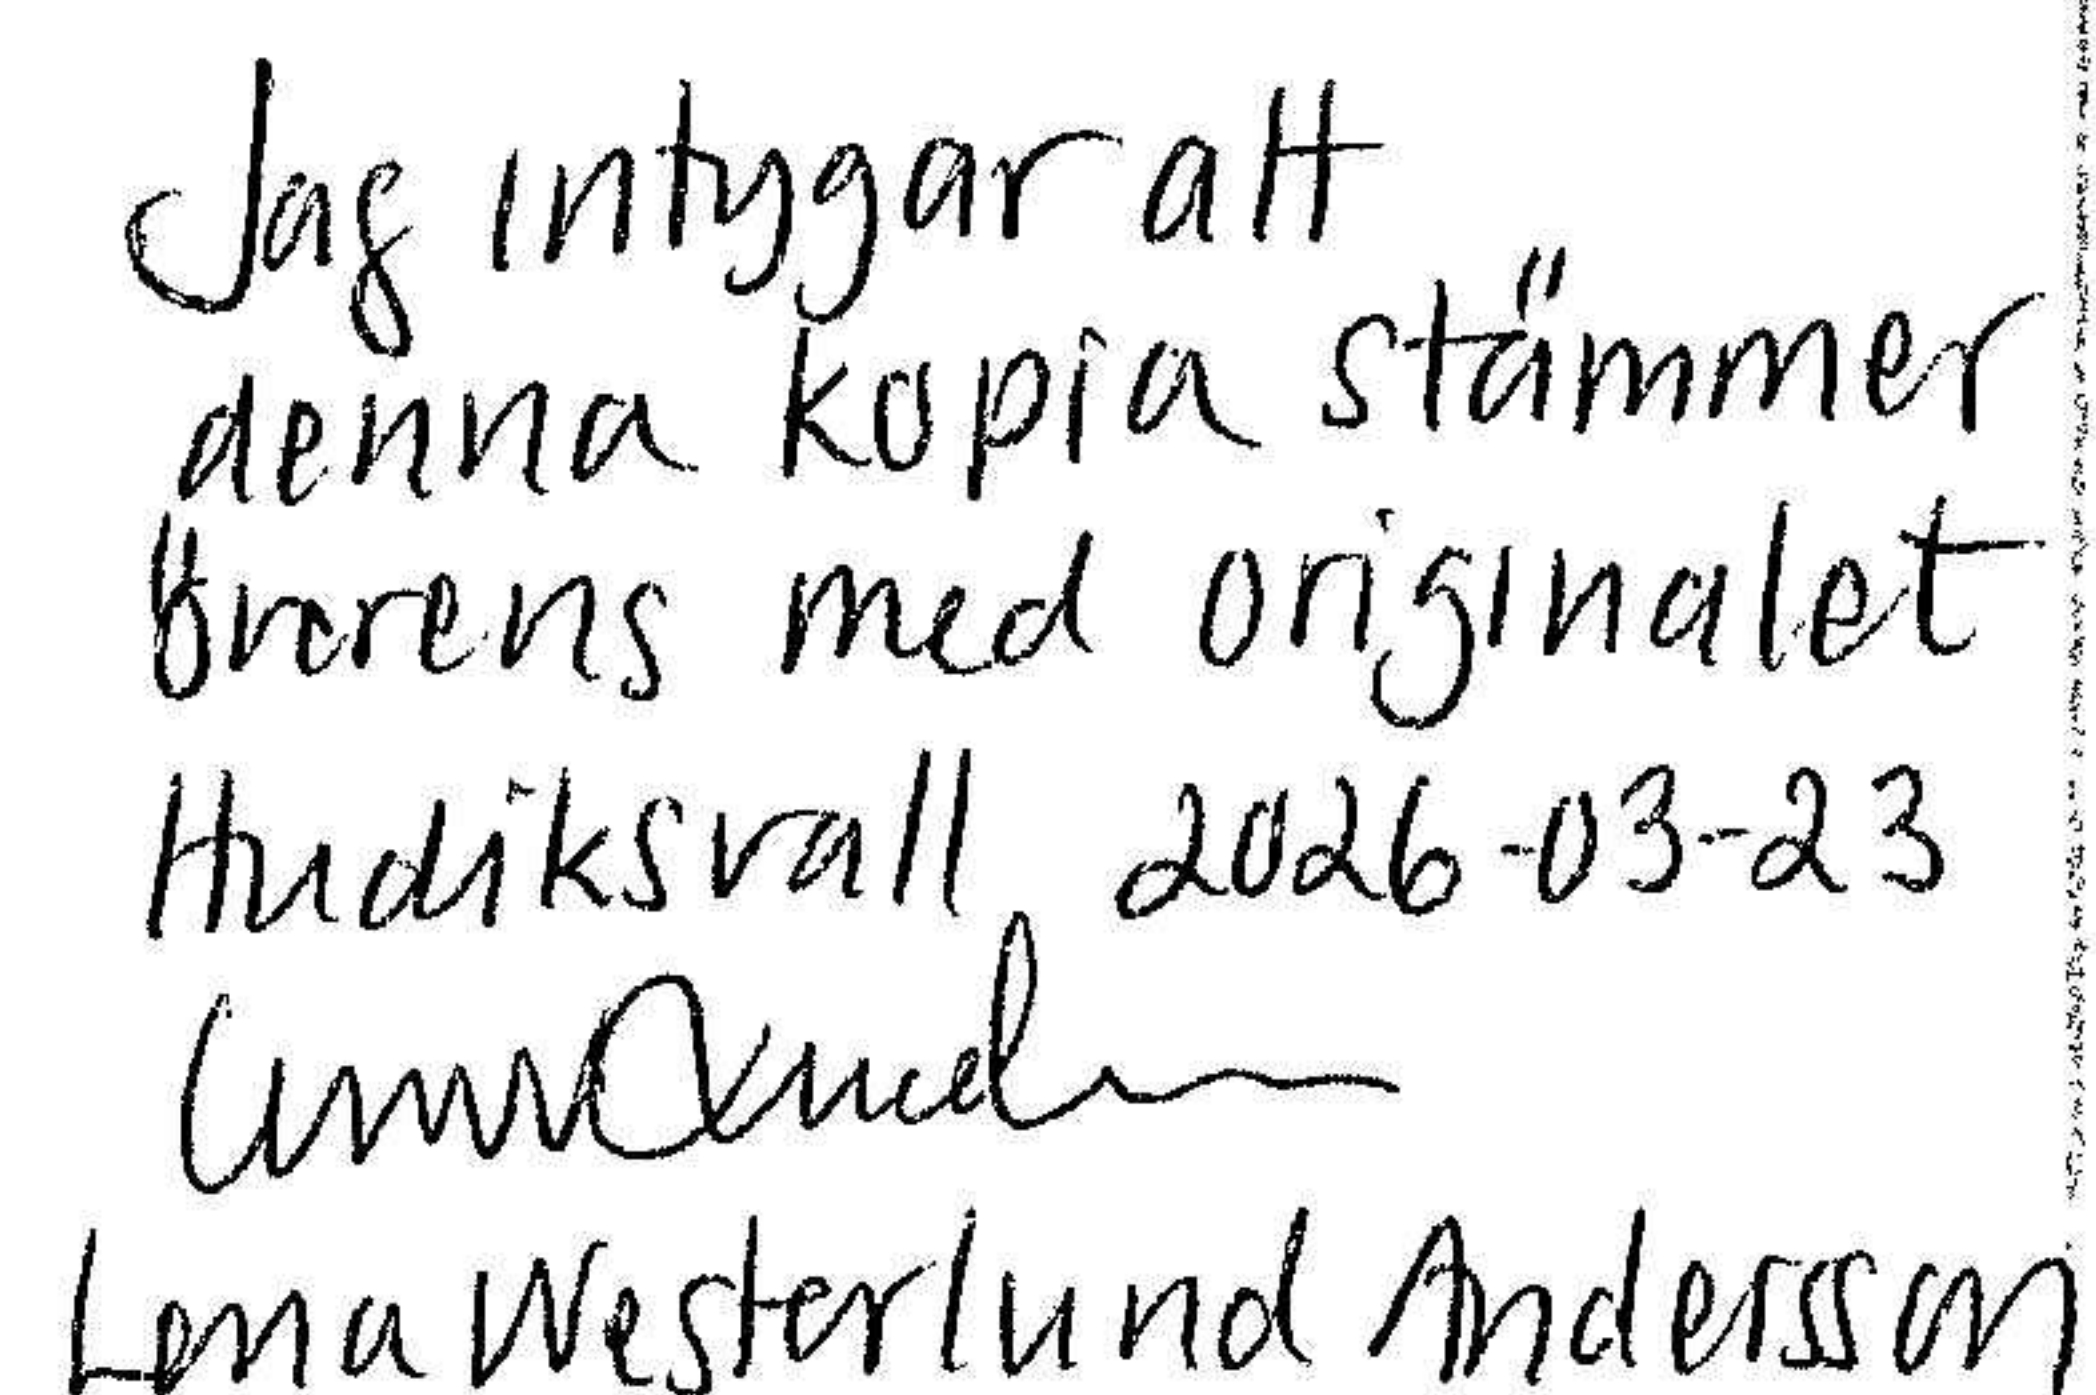 Jag intygar att
denna kopia stämmer
överens med originalet
Hudiksvall 2026-03-23
Lena Westerlund Andersson